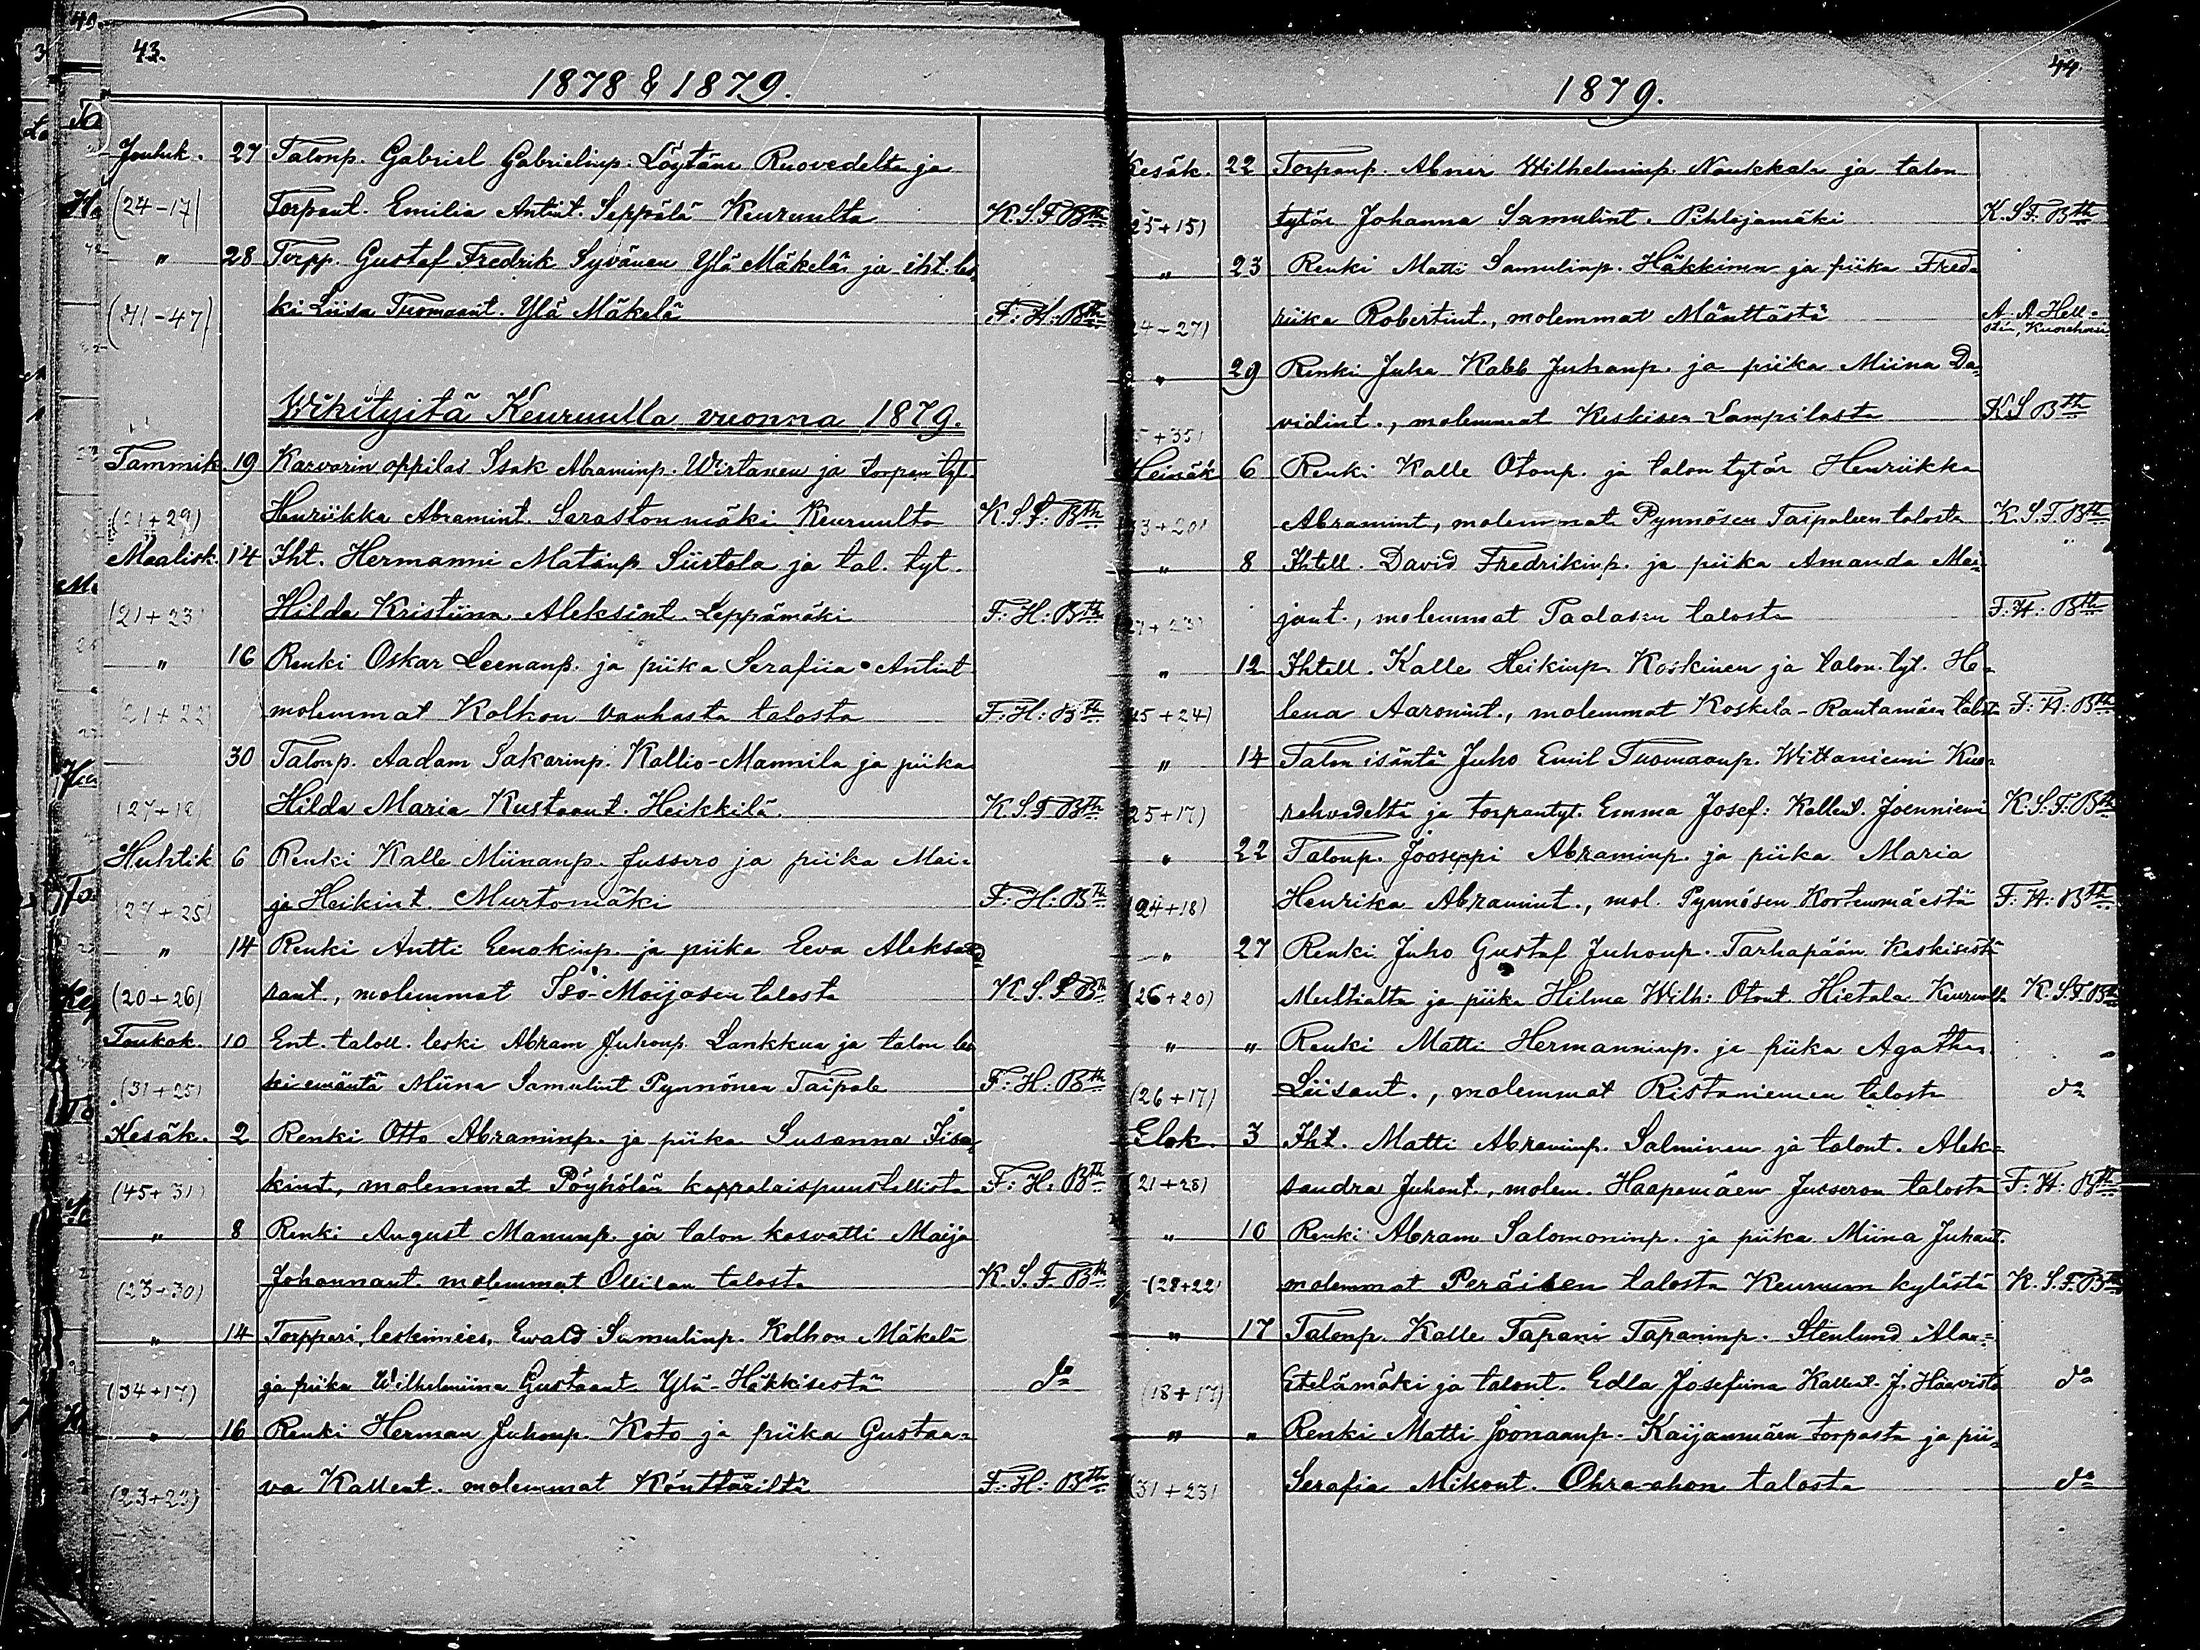 43.
1878 & 1879.
Jouluk. 27 Talonp. Gabriel Gabrielinp. Löytäne Ruovedeltä ja
(24-17) Torpant. Emilia Antint. Seppälä Keuruulta K. S. F. Bth
" 28 Torpp. Gustaf Fredrik Syvänen Ylä Mäkelä ja iht. les-
(41-47) ki Liisa Tuomaant. Ylä Mäkelä F: H: Bth
Wihityitä Keuruulla vuonna 1879.
Tammik. 19 Karvarin oppilas Isak Abraminp. Wirtanen ja torpan tyt.
(21+29) Henriikka Abramint. Sarastonmäki Keuruulta K. S. F: Bth
Maalisk. 14 Iht. Hermanni Matinp. Siirtola ja tal. tyt.
(21+23) Hilda Kristiina Aleksint. Leppämäki F: H: Bth
" 16 Renki Oskar Leenanp. ja piika Serafiia Antint
(21+22) molemmat Kolhon vanhasta talosta F: H: Bth
30 Talonp. Aadam Sakarinp. Kallio-Mannila ja piika
Hilda Maria Kustaant. Heikkilä. K. S. F Bth
Huhtik 6 Renki Kalle Miinanp. Jussero ja piika Mai-
(27+25) ja Heikint. Murtomäki F: H: Bth
" 14 Renki Antti Eenokinp. ja piika Eeva Aleksand-
(20+26) rant., molemmat Iso-Moijosen talosta K. S. F Bth
Toukok. 10 Ent. taloll. leski Abram Juhonp. Lankkua ja talon les-
(31+25) ki emäntä Miina Samulint Pynnönen Taipale F: H: Bth
Kesäk. 2 Renki Otto Abraminp. ja piika Susanna Iisa-
(45+31) kint., molemmat Pöyhölän kappalaispuustellista F: H: Bth
" 8 Renki August Manunp. ja talon kasvatti Maija
(23+30) Johannant. molemmat Ollilan talosta K. S. F. Bth
" 14 Torppari, leskimies, Ewald Samulinp. Kolhon Mäkelä
(34+17) ja piika Wilhelmiina Gustaant Ylä-Häkkisestä do
" 16 Renki Herman Juhonp. Koto ja piika Gustaa-
(23+23) va Kallent. molemmat Könttäriltä F: H: Bth
44.
1879.
Kesäk. 22 Torpanp. Abner Wilhelminp. Naukkala ja talon
25+15) tytär Johanna Samulint. Pihlajamäki K. S F. Bth
" 23 Renki Matti Samulinp. Häkkinen ja piika Fred-
24+27) riika Robertint., molemmat Mänttästä A A Hell-
stén, Kuorehvesi
" 29 Renki Juha Kabb Juhanp. ja piika Miina Da-
5+35) vidint., molemmat Keskisen Lampilasta K S Bth
Heinäk 6 Renki Kalle Otonp. ja talon tytär Henriikka
3+20) Abramint, molemmat Pynnösen Taipaleen talosta K. S. F. Bth
" 8 Ihtell. David Fredrikinp. ja piika Amanda Mai-
27+23) jant., molemmat Paalasen talosta F: H: Bth
" 12 Ihtell. Kalle Heikinp. Koskinen ja talon. tyt. He-
25+24) lena Aaronint., molemmat Koskela-Rantamäen talosta F: H: Bth
" 14 Talon isäntä Juho Emil Tuomaanp. Wittaniemi Kuo-
25+17) rehvedeltä ja torpantyt. Emma Josef: Kallent. Joenniemi K. S. F: Bth
" 22 Talonp. Jooseppi Abraminp. ja piika Maria
(24+18) Henrika Abramint., mol. Pynnösen Kortenmäestä F: H: Bth
" 27 Renki Juho Gustaf Juhonp. Tarhapään Keskisestä
(26+20) Multialta ja piika Hilma Wilh: Otont. Hietala Keuruulta K. S. F Bth
" " Renki Matti Hermanninp. ja piika Agatha
(26+17) Liisant., molemmat Ristaniemen talosta do
Elok. 3 Iht. Matti Abraminp. Salminen ja talont. Alek-
(21+28) sandra Juhont., molem. Haapamäen Jusseron talosta F: H: Bth
" 10 Renki Abram Salomoninp. ja piika Miina Juhant.
(28+22) molemmat Peräisen talosta Keuruun kylästä K. S. F. Bth
" 17 Talonp. Kalle Tapani Tapaninp. Stenlund Ala-
(18+17) Etelämäki ja talont. Edla Josefiina Kallent. J. Haavisto do
" " Renki Matti Joonaanp. Kaijanmäen torpasta ja pii-
(31+23) Serafia Mikont. Ohra-ahon talosta do